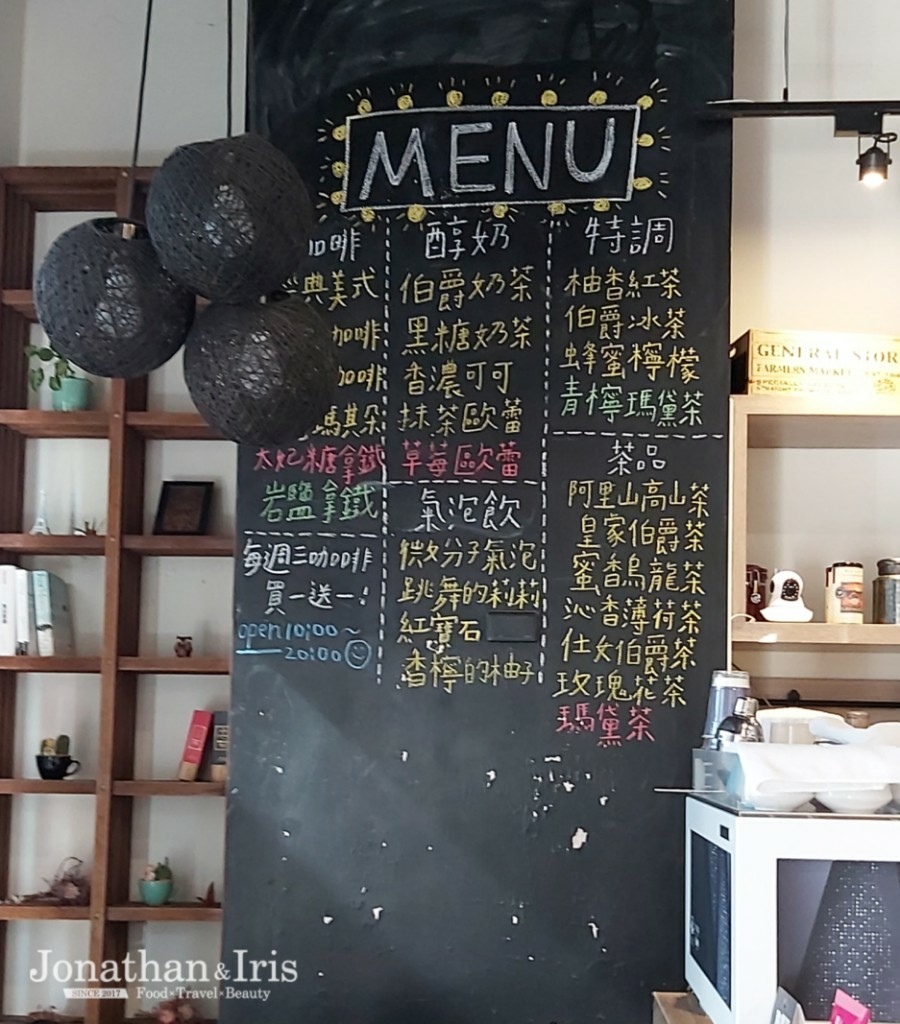 MENU
咖啡
典美式
咖啡
咖啡
瑪其朵
太妃糖拿鐵
岩鹽拿鐵
每週三咖啡
買一送一!
open 10:00~
20:00
醇奶
伯爵奶茶
黑糖奶茶
香濃可可
抹茶歐蕾
草莓歐蕾
氣泡飲
微分子氣泡
跳舞的莉莉
紅寶石
香檸的柚子
特調
柚香紅茶
伯爵冰茶
蜂蜜檸檬
青檸瑪黛茶
茶品
阿里山高山茶
皇家伯爵茶
蜜香烏龍茶
沁香薄荷茶
仕女伯爵茶
玫瑰花茶
瑪黛茶
GENERAL STOR
FARMERS MARKET
Jonathan & Iris
SINCE 2017
Food × Travel × Beauty